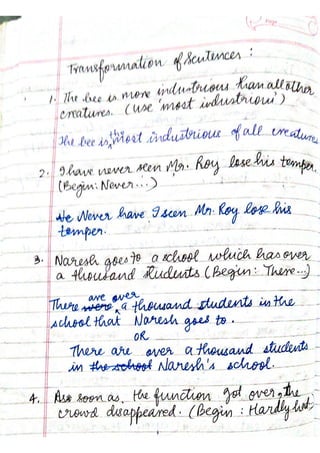 Page
Transformation of Sentences :
1. The bee is more industrious than all other
creatures. (use 'most industrious')
The bee is the most industrious of all creatures
2. I have never seen Mr. Roy lose his temper.
(Begin: Never...)
He Never have I seen Mr. Roy lose his
temper.
3. Naresh goes to a school which has over
a thousand students (Begin: There...)
There were are over a thousand students in the
school that Naresh goes to.
OR
There are over a thousand students
in the school Naresh's school.
4. As soon as, the function got over, the
crowd disappeared. (Begin : Hardly